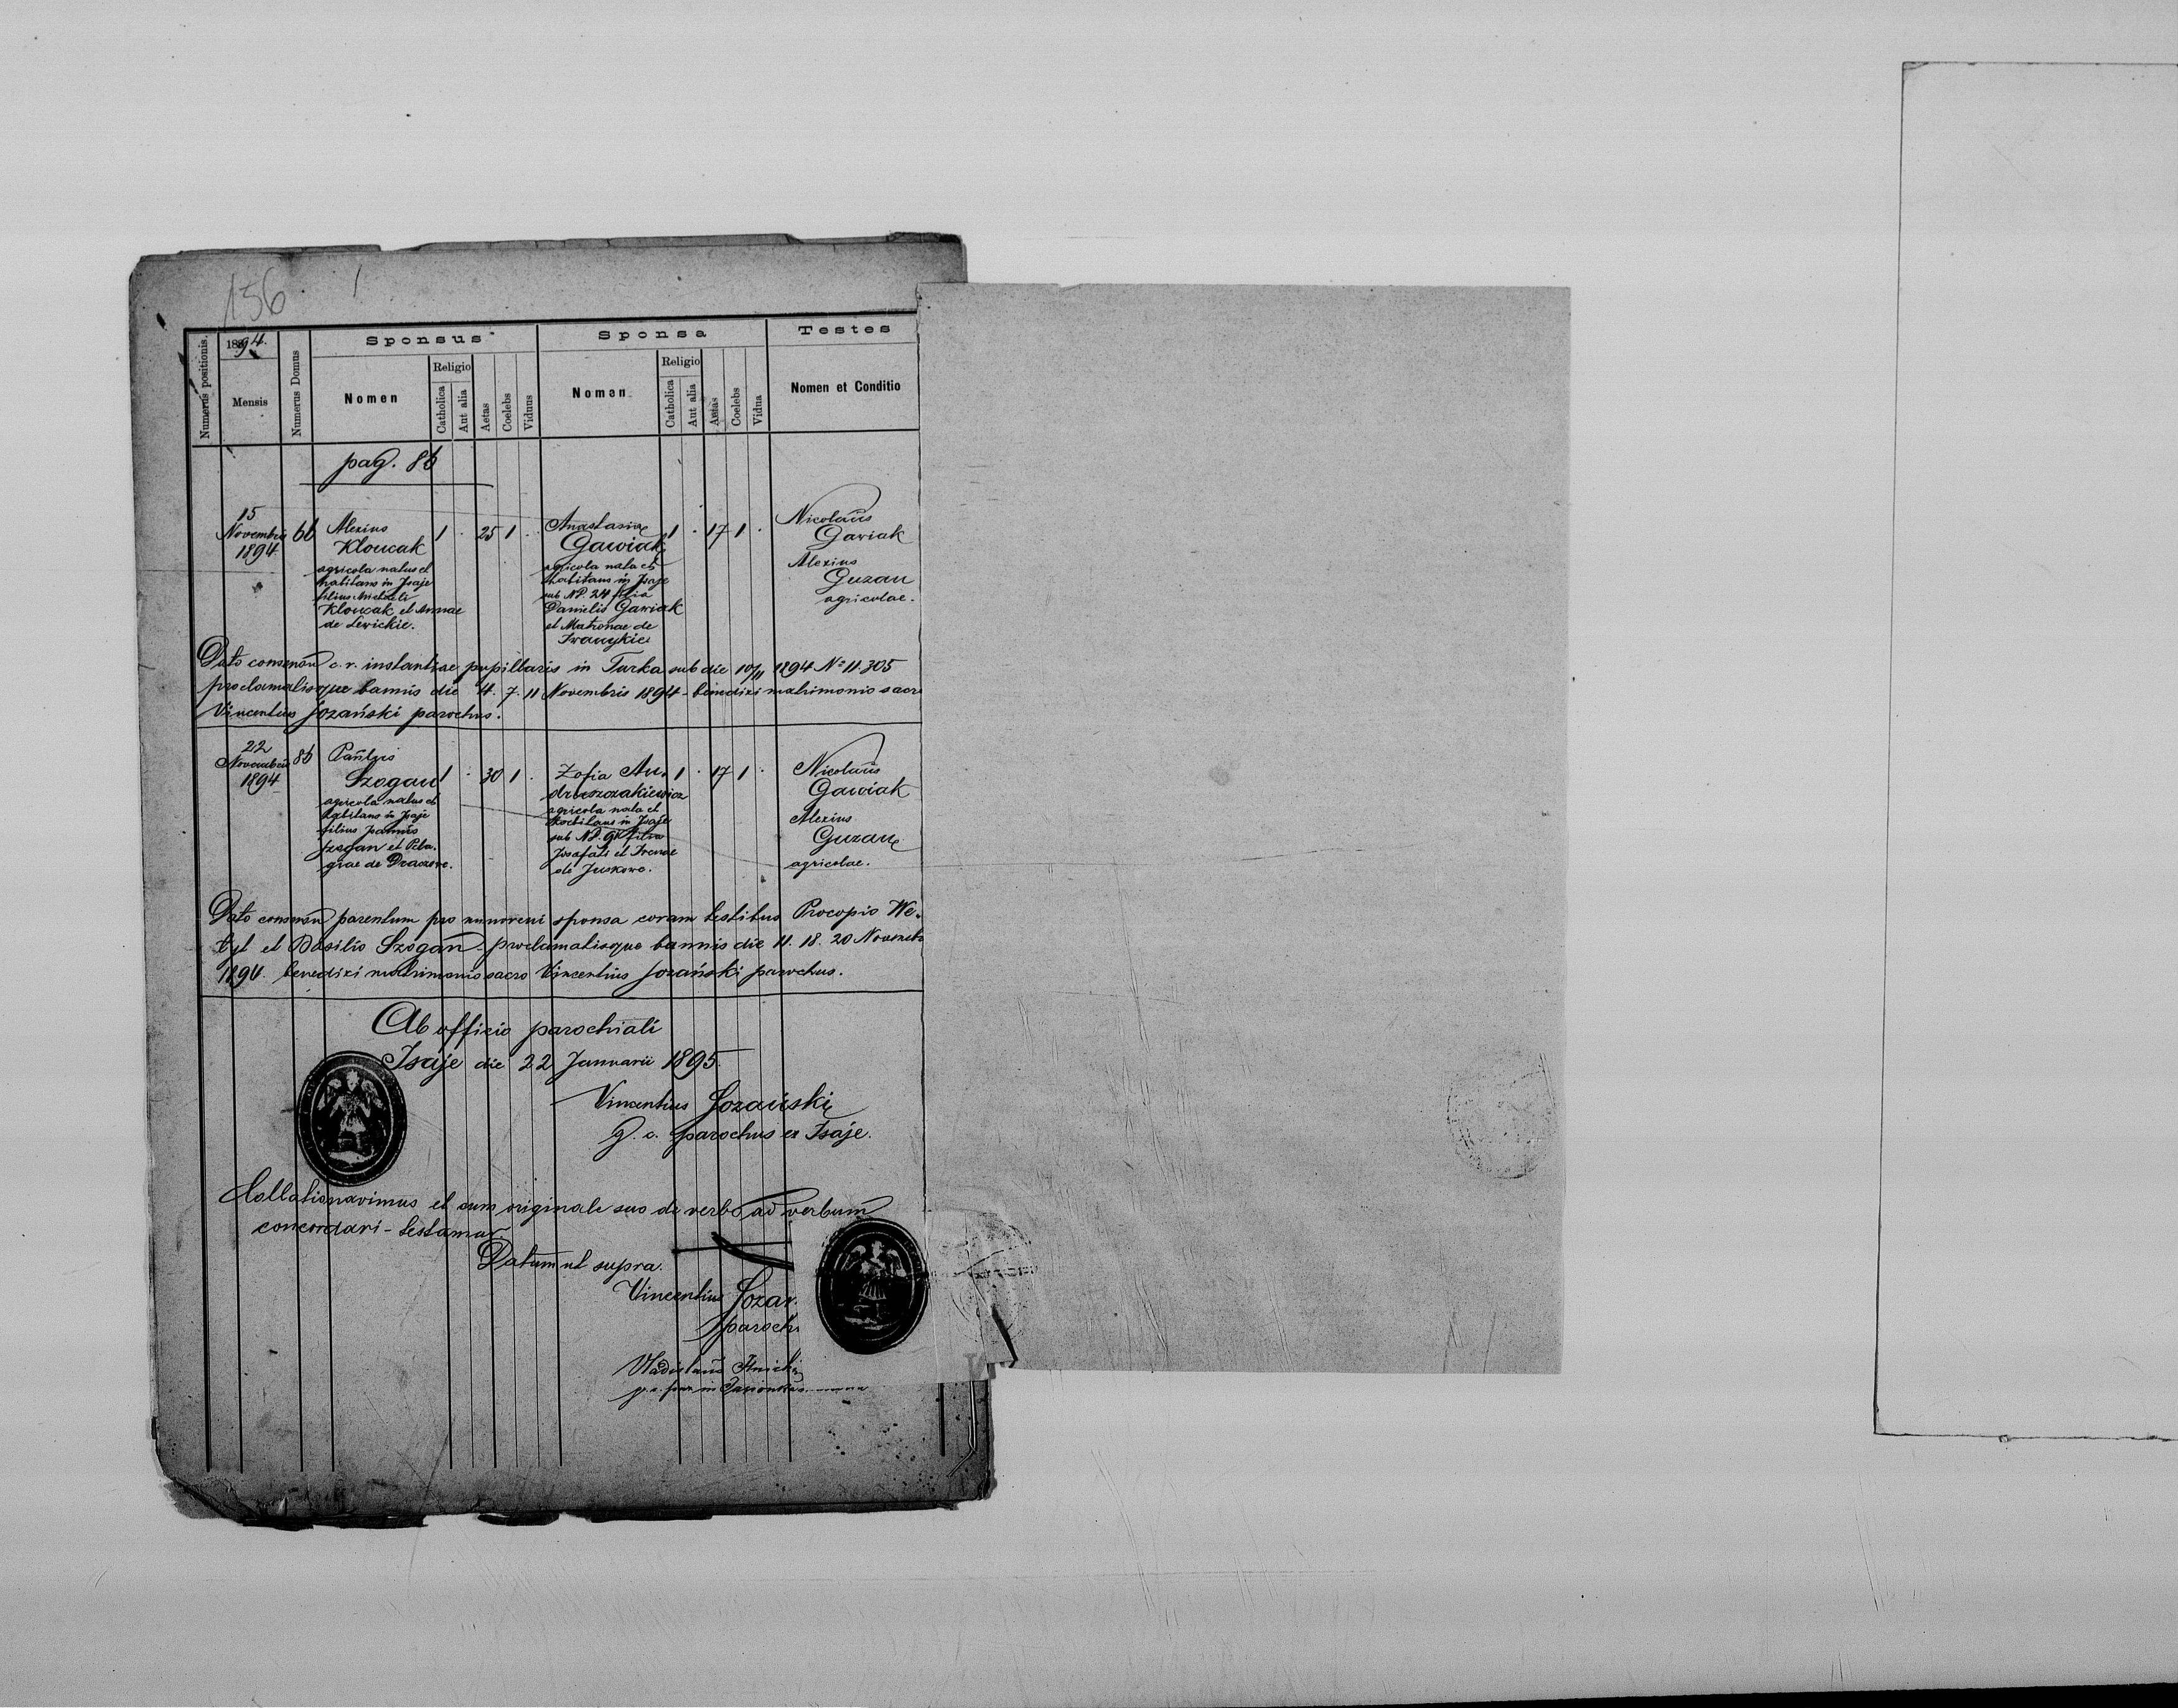 156
Numerus positionis
1894.
Mensis
Numerus Domus
Sponsus
Nomen
Religio
Catholica
Aut alia
Aetas
Coelebs
Viduus
Sponsa
Nomen
Religio
Catholica
Aut alia
Aetas
Coelebs
Vidua
Testes
Nomen et Conditio
pag. 86
15
Novembris
1894
66
Alexius
Kloucak
agricola natus et
habitans in Isaje
filius Michaeli
Kloucak et Annae
de Lewickie.
1 . 25 1 .
Anastasia
Gawiak
agricola nata et
habitans in Isaje
sub NP. 24 filia
Danielis Gawiak
et Matronae de
1 . 17 1 .
Nicolaus
Gawiak
Alexius
Guzan
agricolae.
Dato consensu c. r. instantiae pupillaris in Turka sub die 10/11 1894 No 11.305
proclamatisque bannis die 4. 7. 11 Novembris 1894 - benedixi matrimonio sacro
Vincentius Łozański parochus.
22
Novembris
1894
86
Szogan
agricola natus et
habitans in Isaje
filius Joannis
Szogan et Pela-
giae de
1 . 30 1 .
Zofia An-
druszczakiewicz
agricola nata et
habitans in Isaje
sub NP. filia
Josafati et Irenae
de Juskowo.
1 . 17 1 .
Nicolaus
Gawiak
Alexius
Guzan
agricolae.
Dato consensu parentum pro minoreni sponsa coram testibus Procopio We-
et Basilio Szogan - proclamatisque bannis die 11. 18. 20 Novembr
1894. benedixi matrimonio sacro Vincentius Łozański parochus.
Ab officio parochiali
Isaje die 22 Januarii 1895.
Vincentius Łozański
g. c. parochus ex Isaje.
Collationavimus et cum originale suo de verbo ad verbum
concordari - testamur.
Datum ut supra.
Vincentius Łozań.
paroch